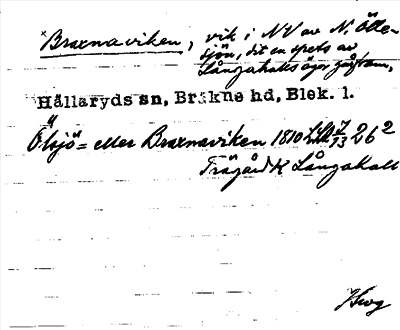 Braxnaviken, vik i NV av N. Ölle-
sjön, dit en spets av
Långahalls ägor gå fram,
Hällaryds sn, Bräkne hd, Blek. l.
Ölsjö= eller Braxnaviken 1810 LSA 7/73 262
Trägård K Långahall